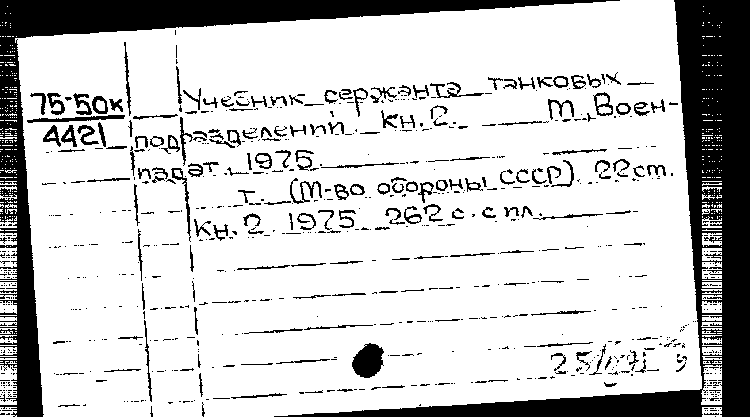 75-50к
4421
Учебник сержанта танковых
подразделений. Кн. 2. М., Воен-
издат, 1975.
т. (М-во обороны СССР). 22 ст.
Кн. 2. 1975 262 с. с ил.